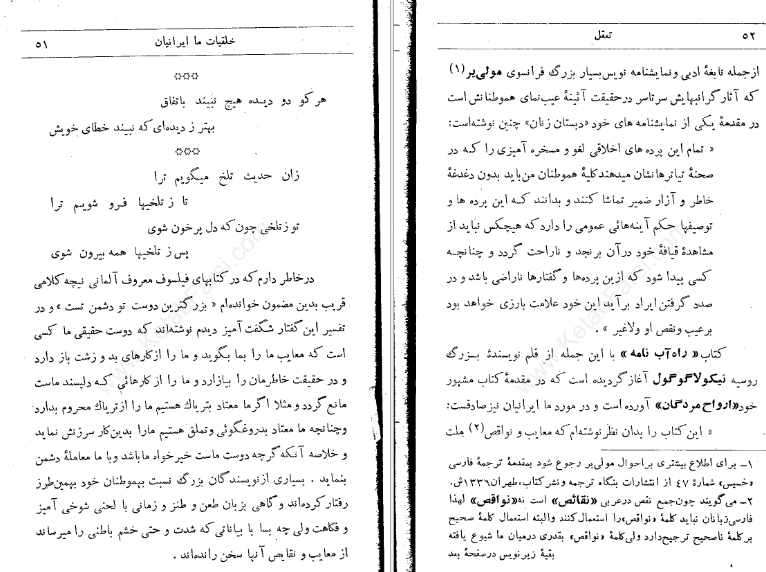 خلقیات ما ایرانیان ۵۱
***
هرکو دو دیده هیچ نبیند باتفاق
بهتر ز دیده‌ای که نبیند خطای خویش
***
زان حدیث تلخ میگویم ترا
تا ز تلخیها فرو شویم ترا
تو زتلخی چون که دل پرخون شوی
پس ز تلخیها همه بیرون شوی
درخاطر دارم که در کتابهای فیلسوف معروف آلمانی نیچه کلامی
قریب بدین مضمون خوانده‌ام «بزرگترین دوست تو دشمن تست» و در
تفسیر این گفتار شگفت آمیز دیدم نوشته‌اند که دوست حقیقی ما کسی
است که معایب ما را بما بگوید و ما را ازکارهای بد و زشت باز دارد
و در حقیقت خاطرمان را بیازارد و ما را از کارهائی که دلپسند ماست
مانع گردد و مثلا اگر ما معتاد بتریاك هستیم ما را ازتریاك محروم بدارد
وچنانچه ما معتاد بدروغگوئی وتملق هستیم مارا بدین‌کار سرزنش نماید
و خلاصه آنکه گرچه دوست ماست خیرخواه ما باشد و با ما معاملهٔ دشمن
بنماید . بسیاری ازنویسندگان بزرگ نسبت بهموطنان خود بهمین‌طرز
رفتار کرده‌اند و گاهی بزبان طعن و طنز و زمانی با لحنی شوخی آمیز
و فکاهت ولی چه بسا با بیاناتی که شدت و حتی خشم باطنی را میرساند
از معایب و نقایص آنها سخن رانده‌اند .
۵۲ تعقل
ازجمله نابغهٔ ادبی و نمایشنامه نویس بسیار بزرگ فرانسوی مولی‌یر (۱)
که آثار گرانبهایش سرتاسر درحقیقت آئینهٔ عیب‌نمای هموطنانش است
در مقدمهٔ یکی از نمایشنامه های خود «دبستان زنان» چنین نوشته‌است:
« تمام این پرده های اخلاقی لغو و مسخره آمیزی را که در
صحنهٔ تیاترها نشان میدهند کلیهٔ هموطنان من‌باید بدون دغدغهٔ
خاطر و آزار ضمیر تماشا کنند و بدانند که این پرده ها و
توصیفها حکم آینه‌هائی عمومی را دارد که هیچکس نباید از
مشاهدهٔ قیافهٔ خود درآن برنجد و ناراحت گردد و چنانچه
کسی پیدا شود که ازین پرده‌ها وگفتارها ناراضی باشد و در
صدد گرفتن ایراد برآید این خود علامت بارزی خواهد بود
برعیب ونقص او ولاغیر » .
کتاب «راه‌آب نامه» با این جمله از قلم نویسندهٔ بزرگ
روسیه نیکولاگوگول آغازگردیده است که در مقدمهٔ کتاب مشهور
خود «ارواح مردگان» آورده است و در مورد ما ایرانیان نیز صادقست:
« این کتاب را بدان نظر نوشته‌ام که معایب و نواقص (۲) ملت
۱ـ برای اطلاع بیشتری براحوال مولی‌یر رجوع شود بمقدمهٔ ترجمهٔ فارسی
«خسیس» شمارهٔ ۴۷ از انتشارات بنگاه ترجمه ونشر کتاب، طهران ۱۳۳۶ش.
۲ـ می‌گویند چون‌جمع نقص درعربی «نقائص» است نه «نواقص» لهذا
فارسی‌زبانان نباید کلمهٔ «نواقص» را استعمال کنند والبته استعمال کلمهٔ صحیح
برکلمهٔ ناصحیح ترجیح‌دارد ولی کلمهٔ «نواقص» بقدری درمیان ما شیوع یافته
بقیهٔ زیرنویس درصفحهٔ بعد